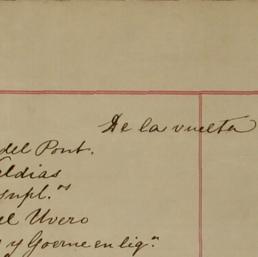 De la vuelta
del Pont.
eldias
supl.os
el Uvero
y Goerne en liq.n